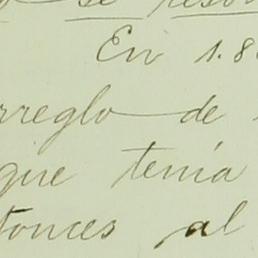 se resol
En 1.8
rreglo de
que tenía
tonces al